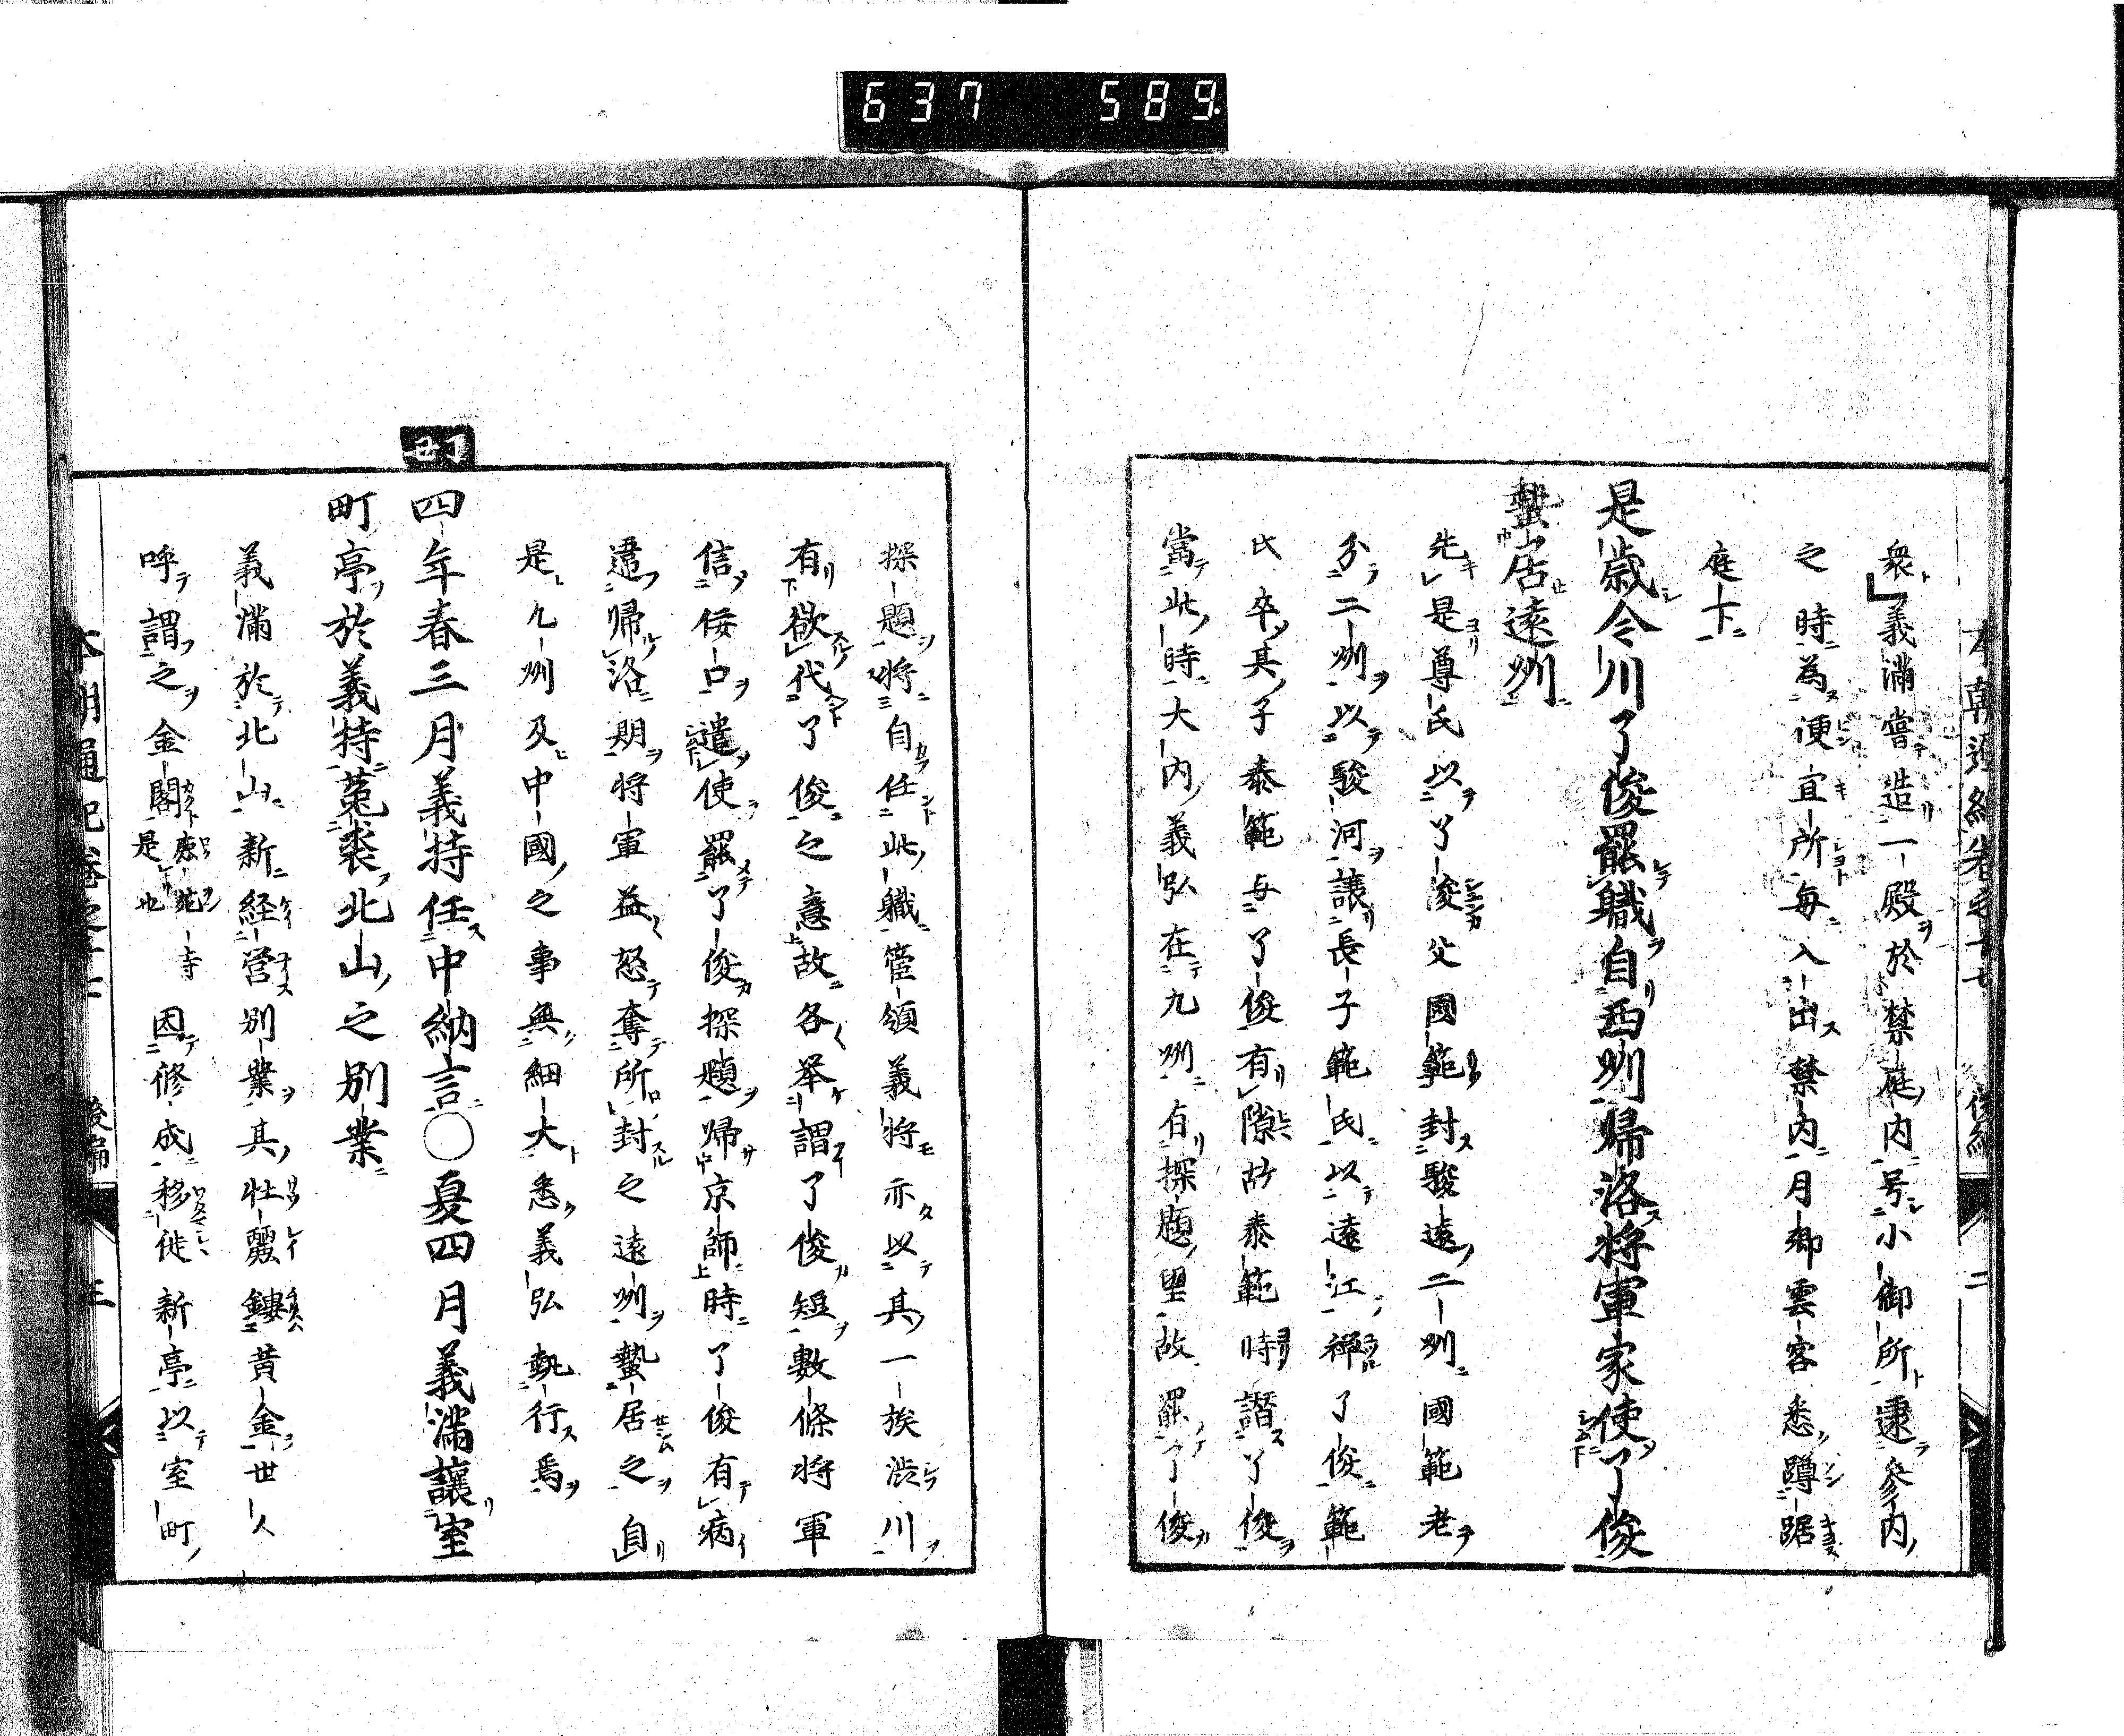 637 589
衆義満嘗造一殿於禁庭内号小御所逮参内
之時為便宜所毎入出禁内月卿雲客悉蹲踞
庭下
是歳今川了俊罷職自西州帰洛将軍家使了俊
蟄居遠州
先是尊氏以了俊父國範封駿遠二州國範老
分二州以駿河譲長子範氏以遠江禅了俊範
氏卒其子泰範与了俊有隙故泰範時譖了俊
當此時大内義弘在九州有探題望故罷了俊
探題将自任此職管領義将亦以其一族渋川
有欲代了俊之意故各挙謂了俊短數條将軍
信佞口遣使罷了俊探題帰京師時了俊有病
違帰洛期将軍益怒奪所封之遠州蟄居之自
是九州及中國之事無細大悉義弘執行焉
丁丑
四年春三月義持任中納言○夏四月義満譲室
町亭於義持菟裘北山之別業
義満於北山新経営別業其壮麗鏤黄金世人
呼謂之金閣鹿苑寺是也因修成移徙新亭以室町
本朝通紀巻之十七 後編 三